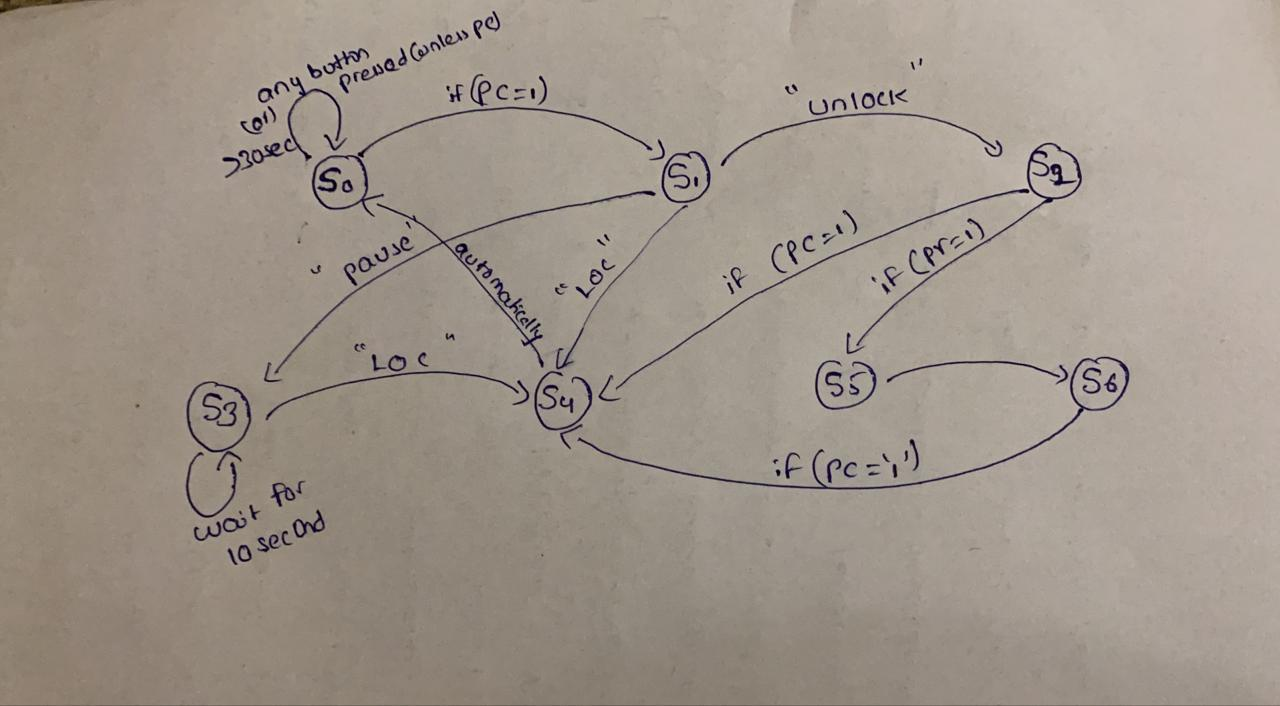 any button
pressed (unless pc)
(or)
>30sec
if (PC=1)
"unlock"
S0
S1
S2
"pause"
automatically
"LOC"
if (PC=1)
if (Pr=1)
"LOC"
S3
S4
S5
S6
if (PC='1')
wait for
10 second